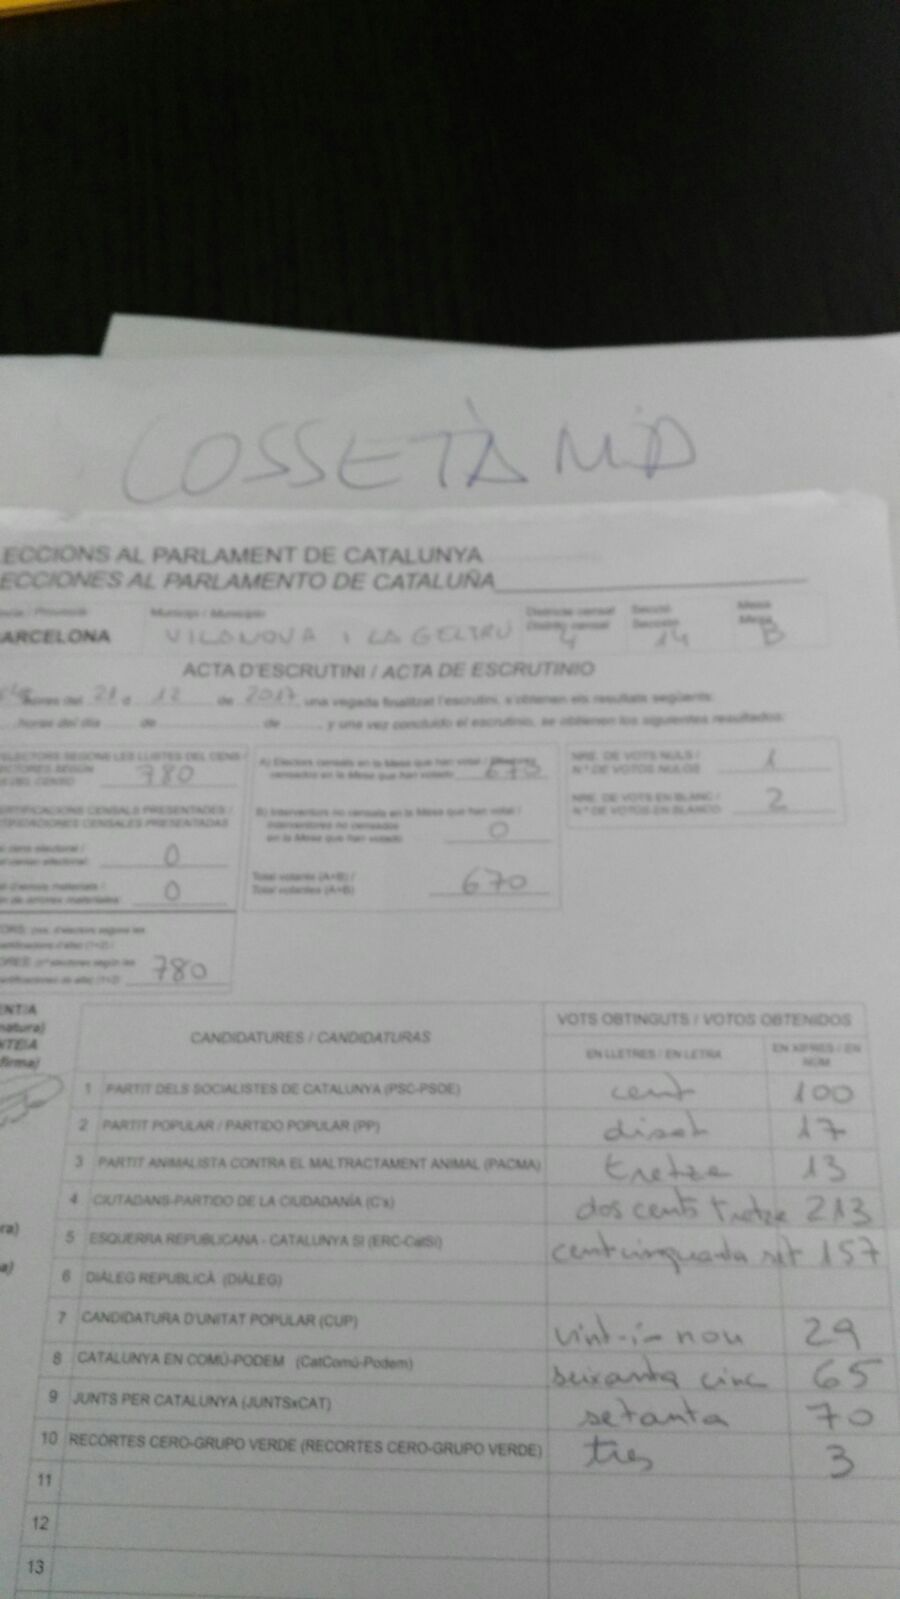 COSSETÀNIA
ECCIONS AL PARLAMENT DE CATALUNYA
ECCIONES AL PARLAMENTO DE CATALUÑA
Municipi / Municipio
Districte censal
Distrito censal
Secció
Sección
Mesa
Mesa
ARCELONA VILANOVA I LA GELTRÚ 4 14 B
ACTA D'ESCRUTINI / ACTA DE ESCRUTINIO
hores del 21 d 12 de 2017 una vegada finalitzat l'escrutini, s'obtenen els resultats següents:
horas del día de de y una vez concluido el escrutinio, se obtienen los siguientes resultados:
ELECTORS SEGONS LES LLISTES DEL CENS /
ECTORES SEGÚN
S DEL CENSO 780
ERTIFICACIONS CENSALS PRESENTADES /
TIFICACIONES CENSALES PRESENTADAS
l cens electoral /
l censo electoral: 0
d'errors materials /
n de errores materiales: 0
780
A) Electors censats en la Mesa que han votat /
censados en la Mesa que han votado 670
B) Interventors no censats en la Mesa que han votat /
Interventores no censados
en la Mesa que han votado 0
Total votants (A+B) /
Total votantes (A+B) 670
NRE. DE VOTS NULS /
N.º DE VOTOS NULOS 1
NRE. DE VOTS EN BLANC /
N.º DE VOTOS EN BLANCO 2
ENT/A
natura)
NTE/A
firma)
CANDIDATURES / CANDIDATURAS
VOTS OBTINGUTS / VOTOS OBTENIDOS
EN LLETRES / EN LETRA
EN XIFRES / EN NÚM
1 PARTIT DELS SOCIALISTES DE CATALUNYA (PSC-PSOE) cent 100
2 PARTIT POPULAR / PARTIDO POPULAR (PP) disset 17
3 PARTIT ANIMALISTA CONTRA EL MALTRACTAMENT ANIMAL (PACMA) tretze 13
4 CIUTADANS-PARTIDO DE LA CIUDADANÍA (C's) dos cents tretze 213
5 ESQUERRA REPUBLICANA - CATALUNYA SÍ (ERC-CatSí) cent cinquanta set 157
6 DIÀLEG REPUBLICÀ (DIÀLEG)
7 CANDIDATURA D'UNITAT POPULAR (CUP) vint-i-nou 29
8 CATALUNYA EN COMÚ-PODEM (CatComú-Podem) seixanta cinc 65
9 JUNTS PER CATALUNYA (JUNTSxCAT) setanta 70
10 RECORTES CERO-GRUPO VERDE (RECORTES CERO-GRUPO VERDE) tres 3
11
12
13